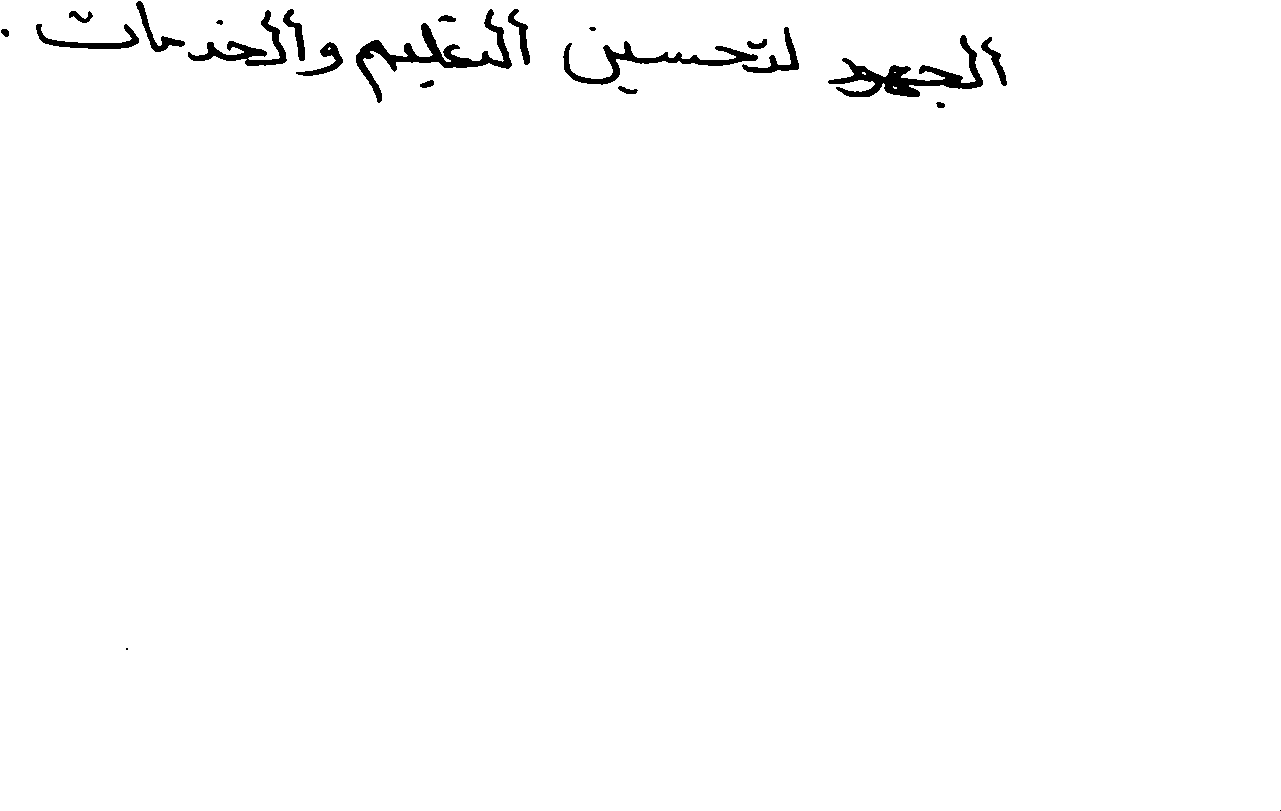 الجهود لتحسين التعليم والخدمات .